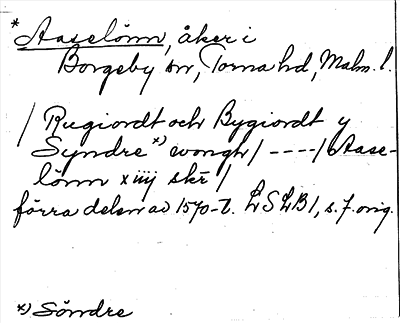 * Aaselönn, åker i
Borgeby sn, Torna hd, Malm. l.
/ Rugiordt och Bygiordt y
Syndre *) wongh / ---- / Aase-
lönn xiiij skr /
förra delen av 1570-t. LSLB 1, s. 7. orig.
*) Söndre